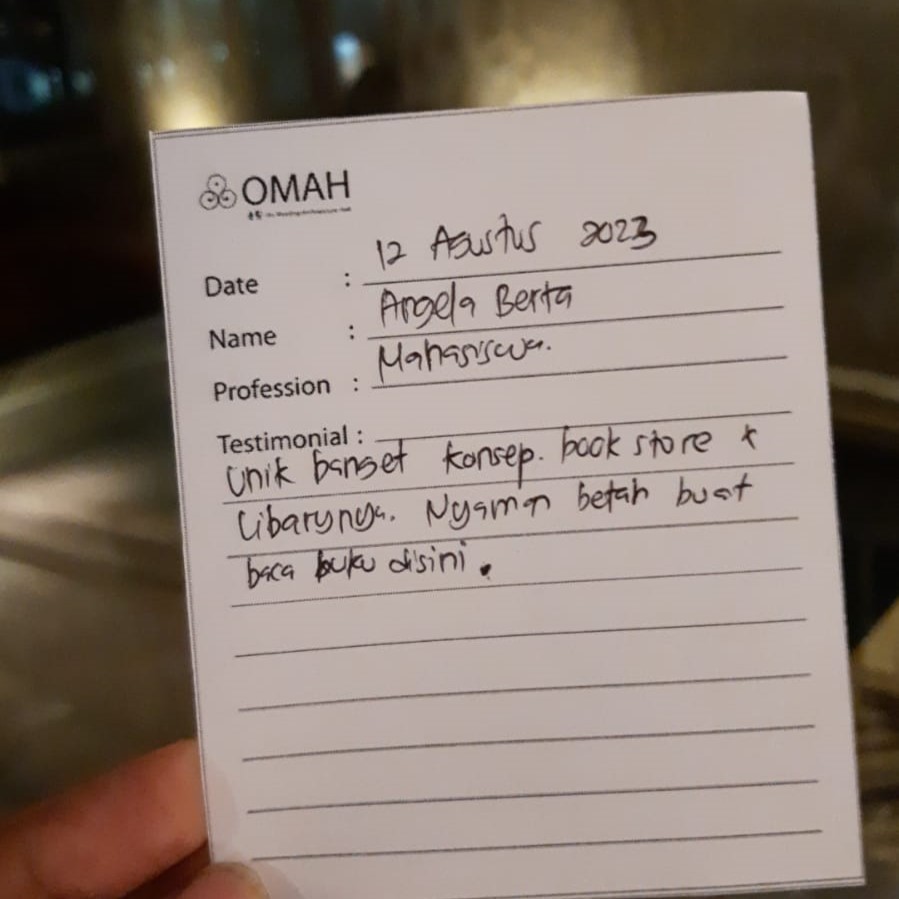 OMAH
Date : 12 Agustus 2023
Name : Angela Berta
Profession : Mahasiswa.
Testimonial :
Unik banget konsep. book store +
Libarynya. Nyaman betah buat
baca buku disini.